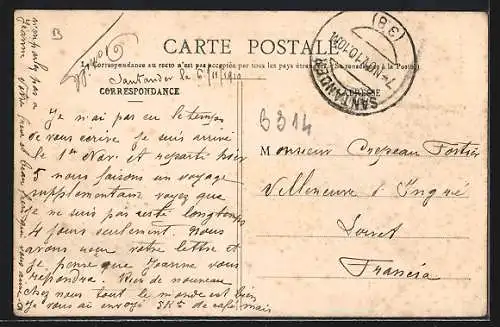 CARTE POSTALE
La Correspondance au recto n'est pas acceptée par tous les pays étrangers
Santander le 6/11/1910
CORRESPONDANCE
ADRESSE
SANTANDER
(3.8)
B
6314
Je n'ai pas eu le temps
de vous écrire je suis arrivé
le 1er Nov. et reparti hier
5 nous faisons un voyage
supplémentaire voyez que
je ne suis pas resté longtemps
4 jours seulement. Nous
avons reçu votre lettre et
je pense que Jeanne vous
repondra. Rien de nouveau
chez nous tout le monde est bien
Je vous ai envoyé 5Ks de café mais
n'en parlez pas a
Jeanne votre frère et beau frère qui vous aime
Monsieur Crepeau Fortier
Villeneuve d'Ingré
Loiret
Francia